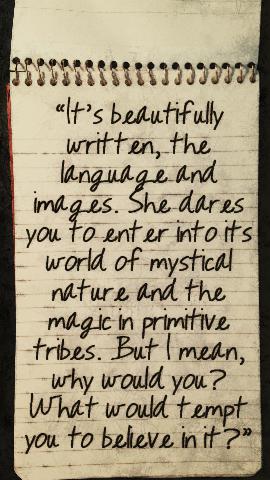 “It's beautifully
written, the
language and
images. She dares
you to enter into it's
world of mystical
nature and the
magic in primitive
tribes. But I mean,
why would you?
What would tempt
you to believe in it?”